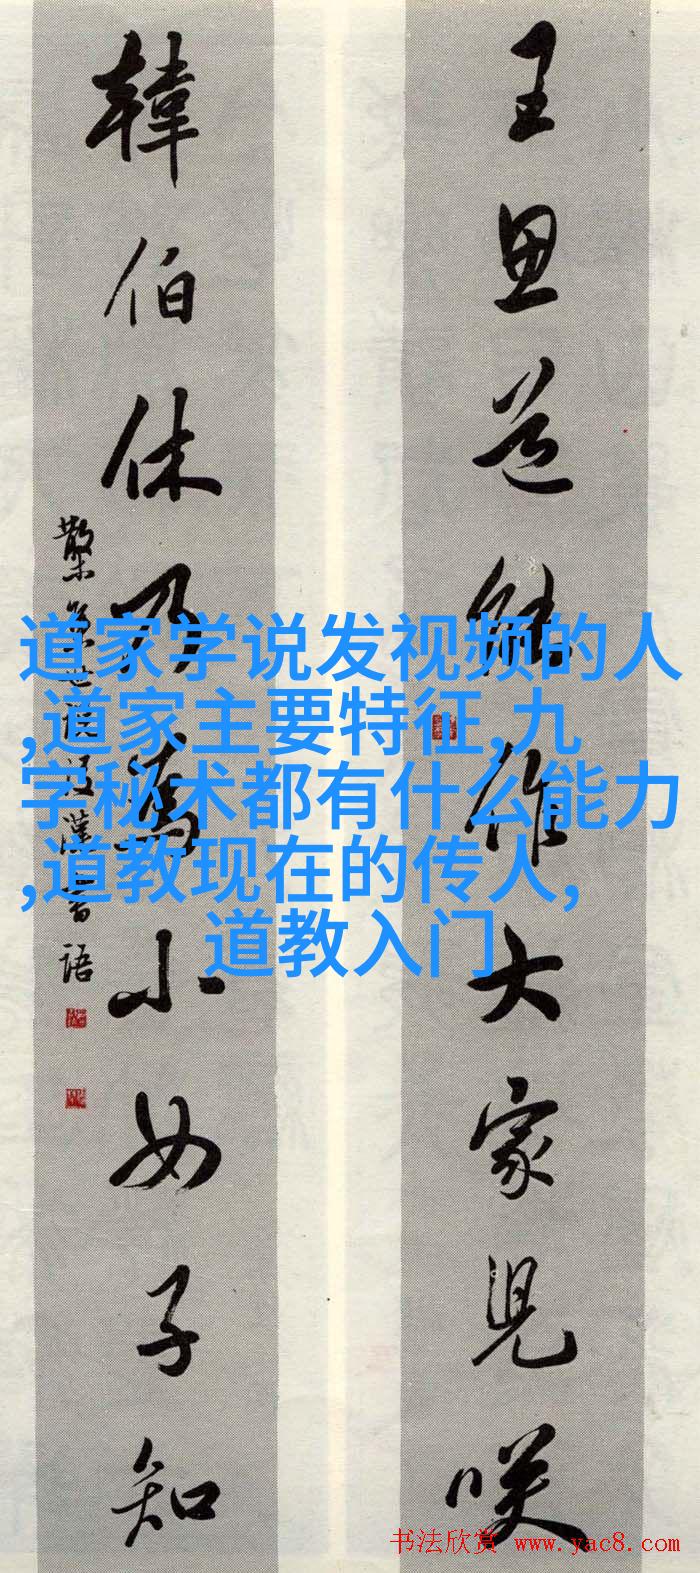 王思道能作大家兒咲
韓伯休乃為小女子知
語
道家学说发视频的人
,道家主要特征,九
字秘术都有什么能力
,道教现在的传人,
道教入门
书法欣赏 www.yac8.com